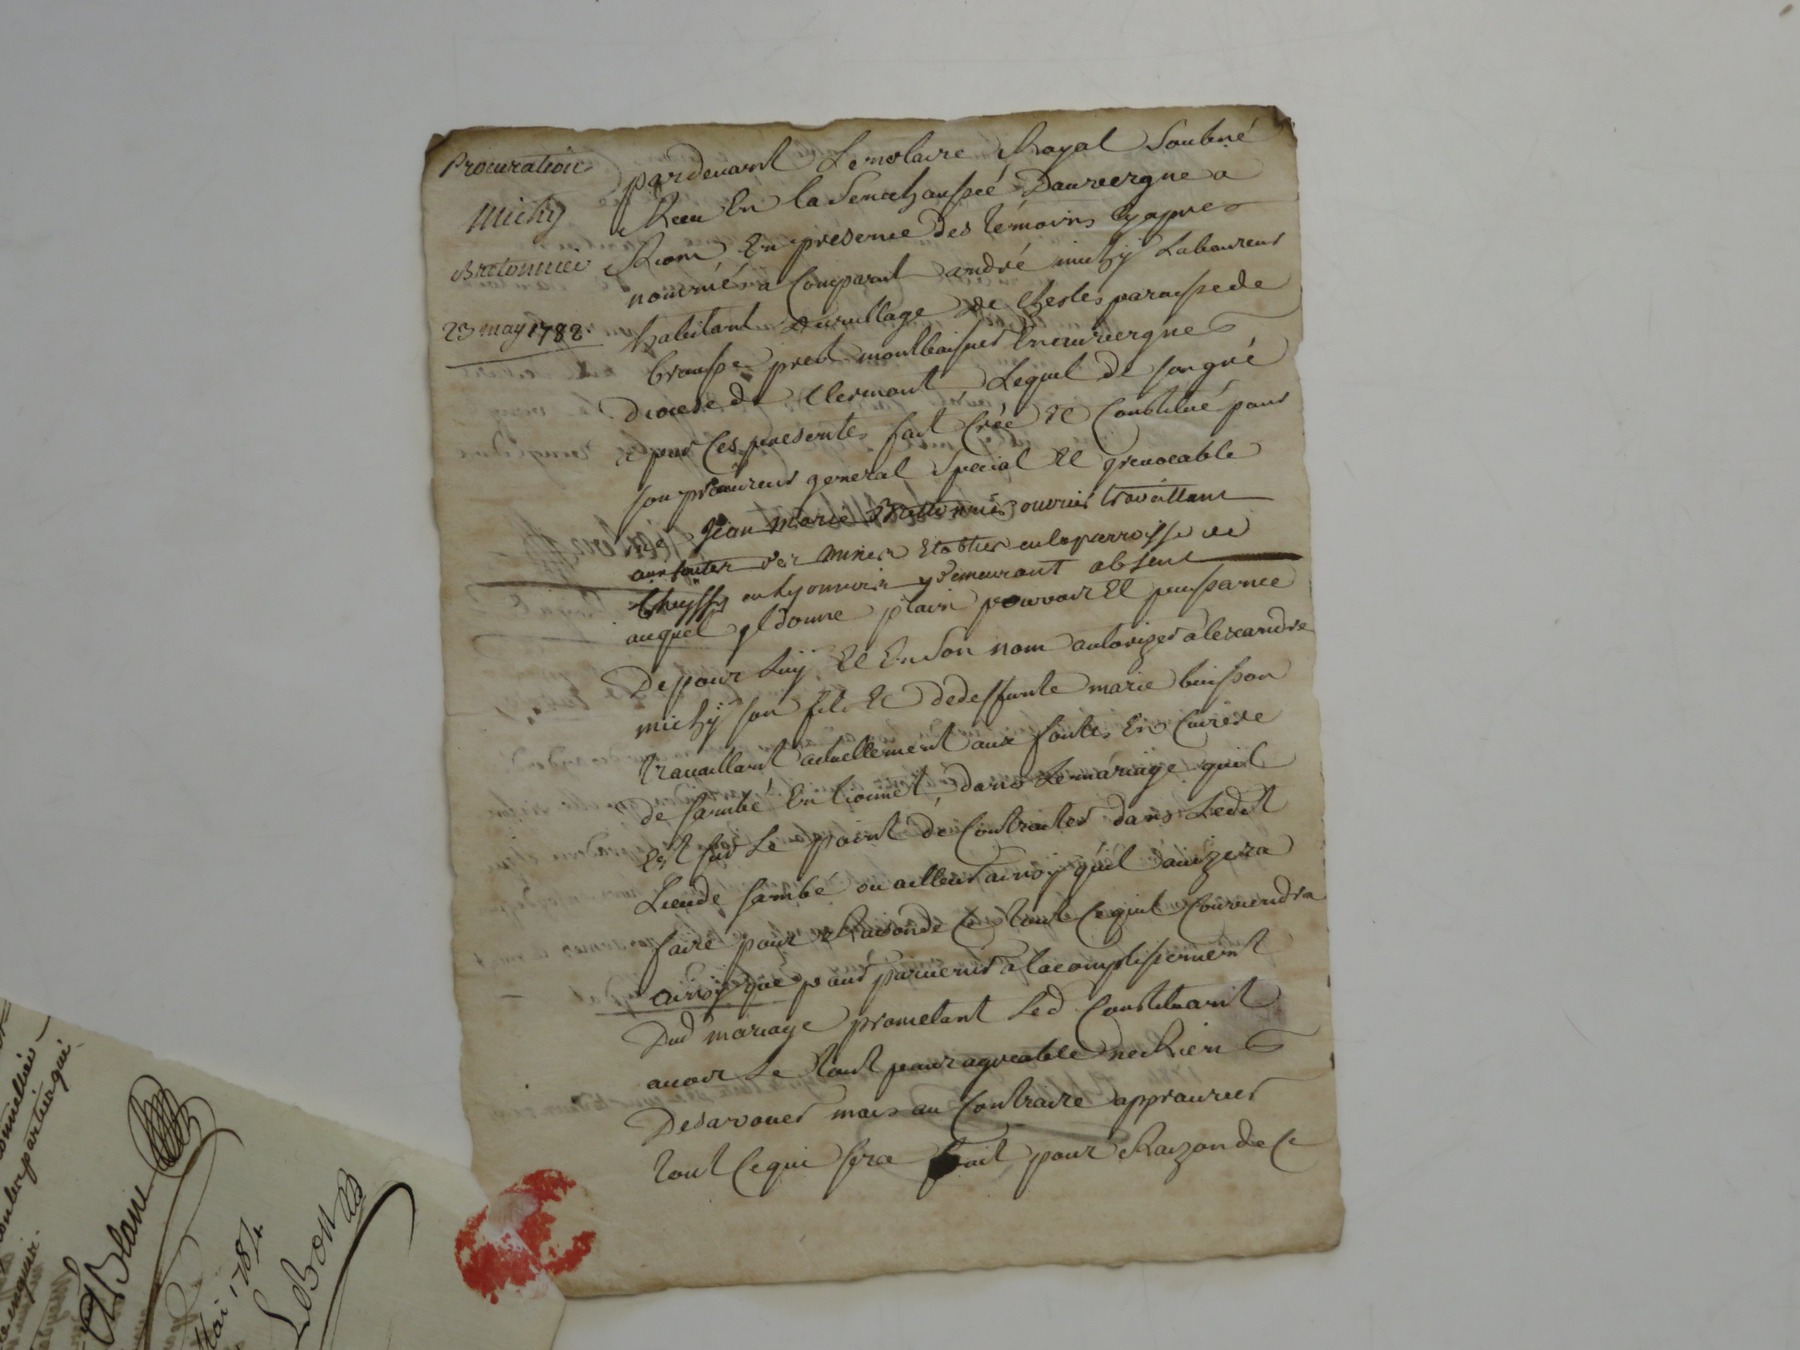 Procuration
Michy
Bretonnier
23 may 1788
pardevant Le notaire Royal Soubné
Receu En la Senechaussée Dauvergne a
Riom En presence des temoins Cy apres
nommés a Comparut andré michy Laboureur
habitant du village de Chesles paroisse de
Brousse prest montboissier En auvergne
diocese de Clermont Lequel de son gré
a par Ces presentes fait Créé Et Constitué pour
son procureur general Special Et yrevocable
Jean Marie Bretonnier ouvrier travaillant
aux fontes des mines Etablies en la parroisse de
Cheyssy en Lyonnois y demeurant absent
auquel yl donne plain pouvoir Et puissance
De pour Luy Et En Son nom autorizer alexandre
michy son fils Et de deffunte marie buisson
travaillant actuellement aux fontes En Cuivre
de sambé En Lionnet dans Le mariage quil
Est sur Le point de Contracter dans Ledit
Lieu de sambé ou ailleur ainsy quil avizera
faire pour Raison de Ce tout Ce quil Conviendra
ainsy que pour parvenir a lacomplissement
Dud mariage prometant Led Constituant
avoir Le tout pour agreable ne Rien
Desavouer mais au Contraire approuver
tout Ce qui sera fait pour Raizon de Ce
par
qui
Blanc
Mai 1784
LeBon